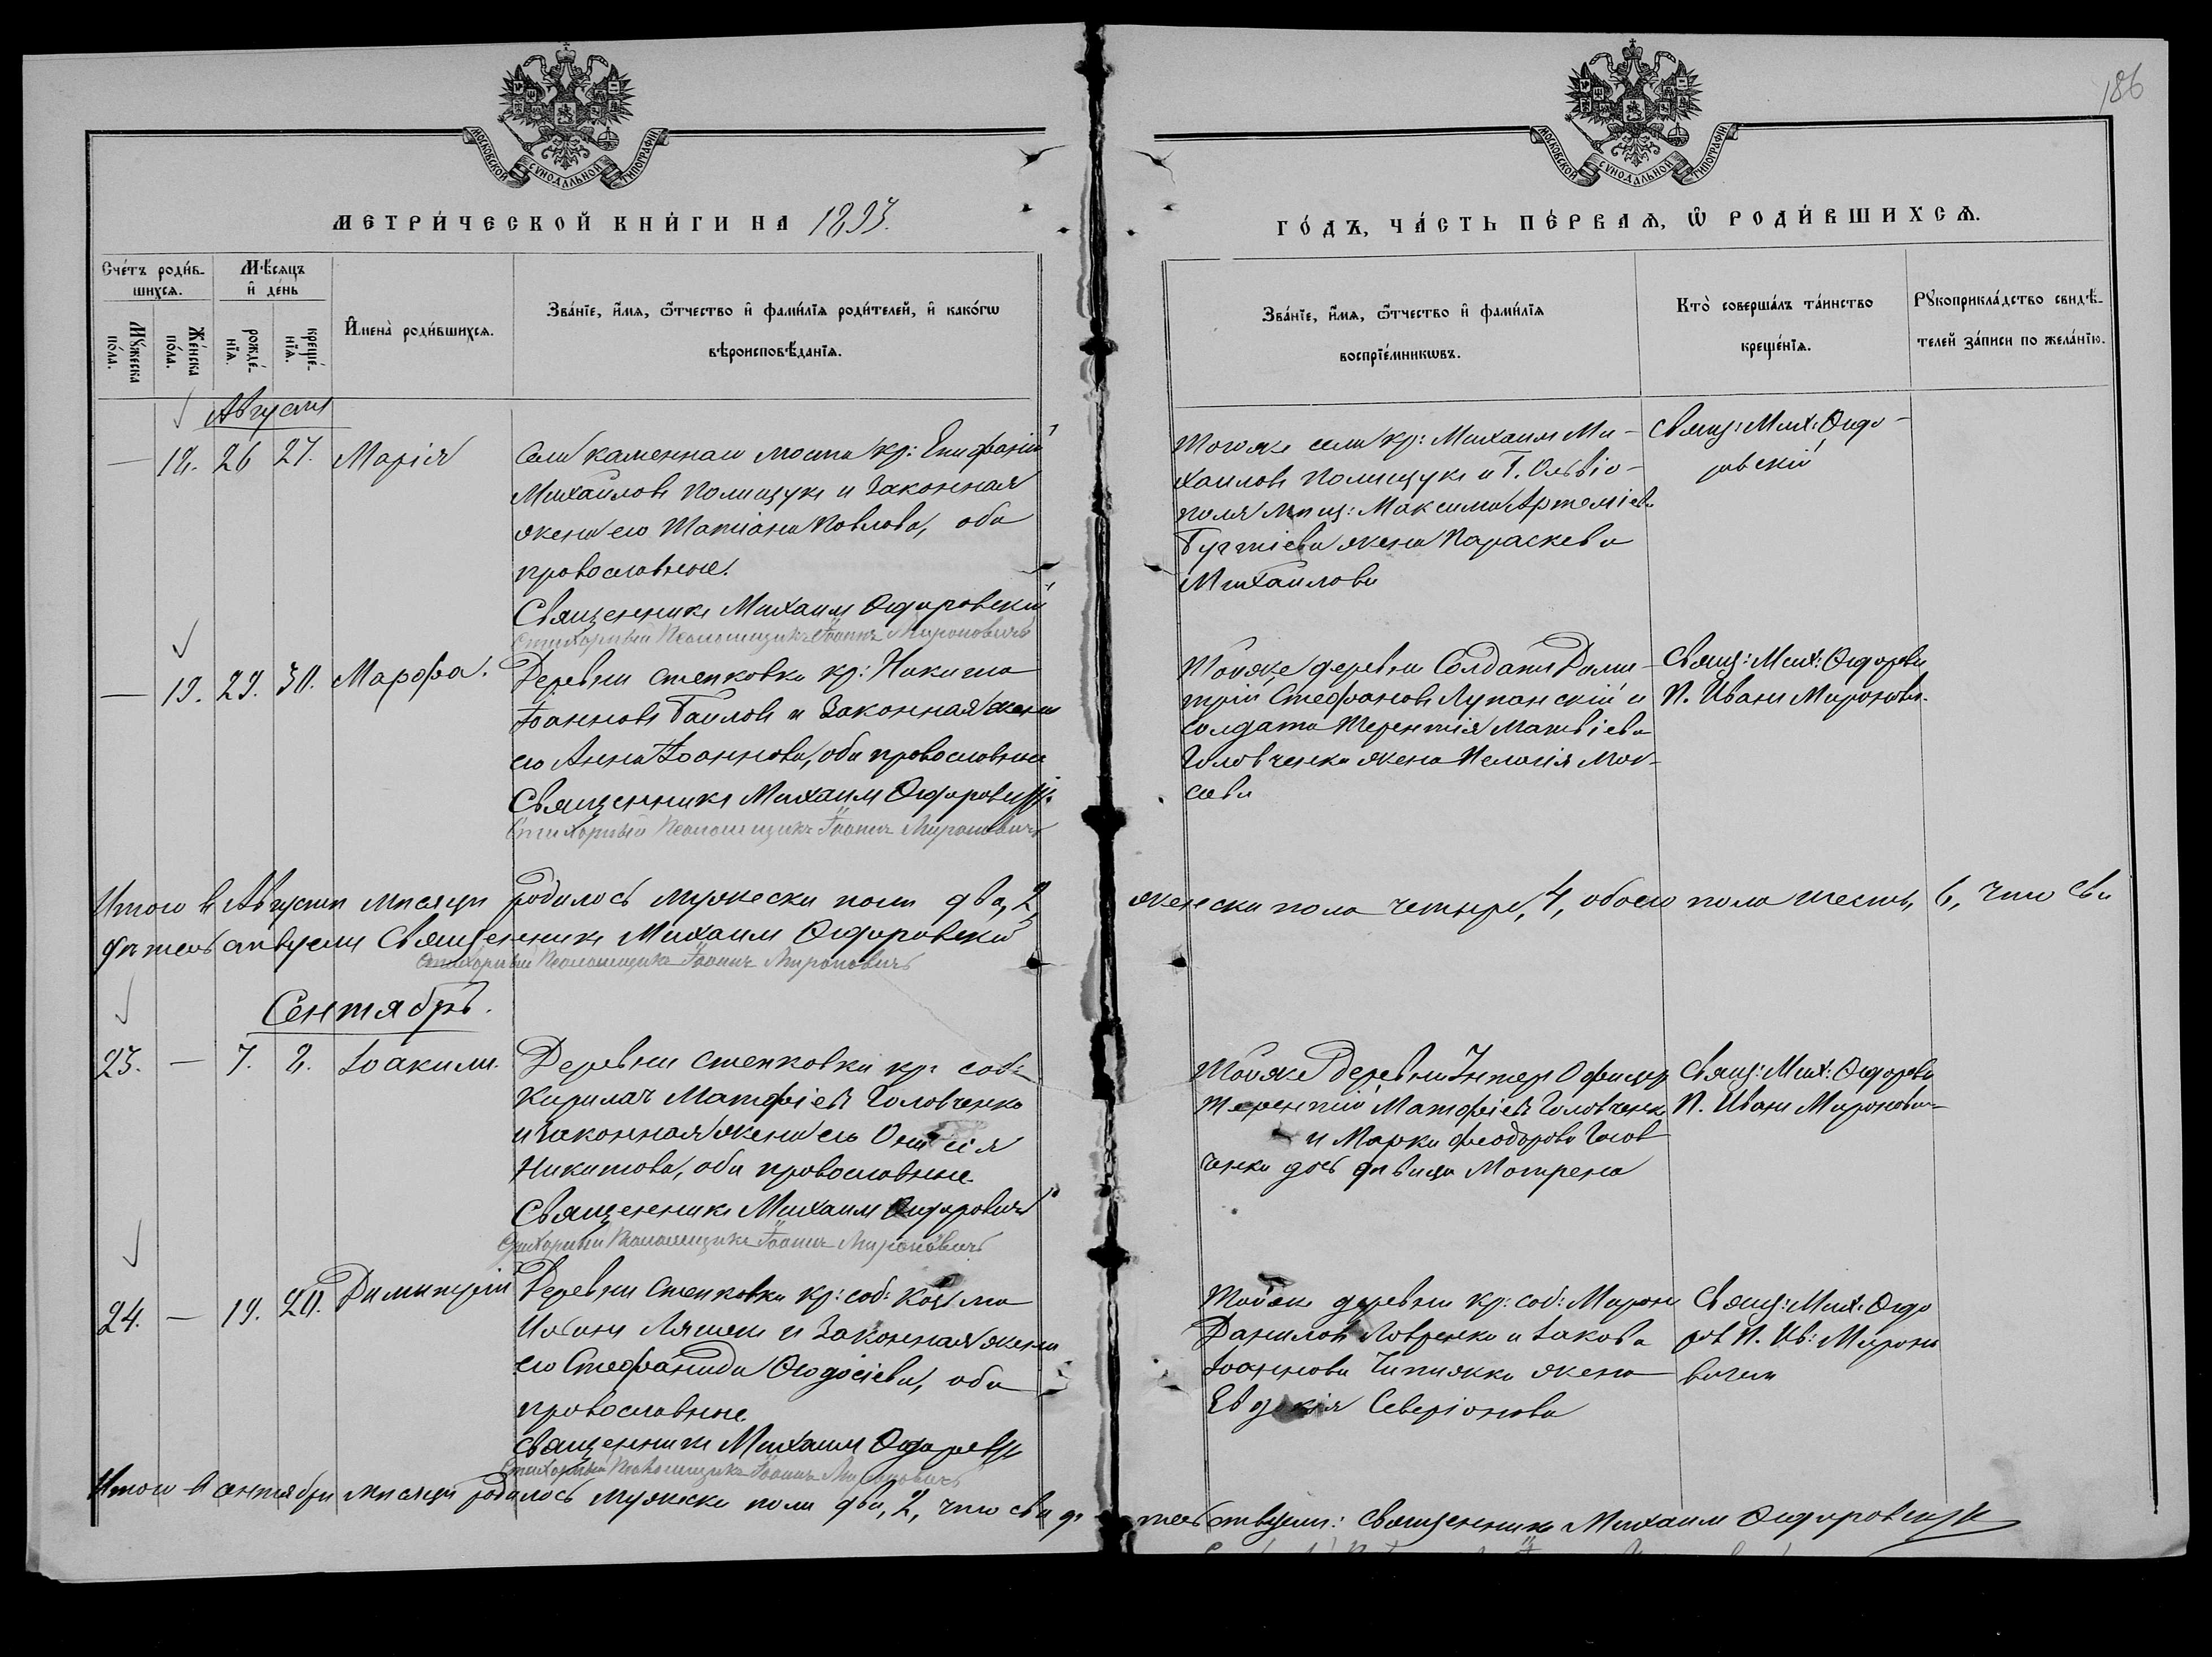 186
МОСКОВСКОЙ СѴНОДАЛЬНОЙ ТИПОГРАФІИ
МОСКОВСКОЙ СѴНОДАЛЬНОЙ ТИПОГРАФІИ
МЕТРИ́ЧЕСКОЙ КНИ́ГИ НА 1893.
ГО́ДЪ, ЧА́СТЬ ПЕ́РВАѦ, Ѡ҆ РОДИ́ВШИХСѦ.
Сче́тъ роди́в-
шихсѧ.
Мꙋ́жеска
по́ла.
Же́нска
по́ла.
Мѣ́сѧцъ
и҆ де́нь
рожде́-
нїѧ.
креще́-
нїѧ.
И҆мена̀ роди́вшихсѧ.
Зва́нїе, и҆́мѧ, ѻ҆́тчество и҆ фами́лїѧ роди́телей, и҆ како́гѡ
вѣроисповѣ́данїѧ.
Зва́нїе, и҆́мѧ, ѻ҆́тчество и҆ фами́лїѧ
воспрїе́мникѡвъ.
Кто̀ соверша́лъ та́инство
креще́нїѧ.
Рꙋкоприкла́дство свидѣ́-
телей за́писи по жела́нїю.
Августъ
— 18. 26 27. Марія
Села Каменнаго моста кр: Епифаній
Михаиловъ Полищукъ и законная
жена его Татіана Павлова, оба
православные.
Священникъ Михаилъ Сидоровскій
Стихарный Псаломщикъ Іоаннъ Мироновичъ
Тогоже села кр: Михаилъ Ми-
хаиловъ Полищукъ и Г. Ольвіо-
поля мѣщ: Максима Артеміева
жена Параскева
Михаилова
Свящ: Мих: Сидо-
ровскій
— 19. 29. 30. Марѳа.
Деревни Степковки кр: Никита
Іоанновъ Гаиловъ и законная жена
его Анна Іоаннова, оба православные
Священникъ Михаилъ Сидоровскій
Стихарный Псаломщикъ Іоаннъ Мироновичъ
Тойже деревни Солдатъ Дими-
трій Стефановъ Лупанскій и
солдата Терентія Матвіева
Головченка жена Пелагія Мои-
сеева
Свящ: Мих: Сидоровск
П. Иванъ Мироновичъ
Итого въ Августѣ мѣсяцѣ родилось мужеска пола два, 2, женска пола четыре, 4, обоего пола шесть, 6, что сви
дѣтельствуемъ Священникъ Михаилъ Сидоровскій
Стихарный Псаломщикъ Іоаннъ Мироновичъ
Сентябрь.
23. — 7. 8. Іоакимъ.
Деревни Степковки кр: соб:
Кирилъ Матфіевъ Головченко
и законная жена его
Никитова, оба православные.
Священникъ Михаилъ Сидоровскій
Стихарный Псаломщикъ Іоаннъ Мироновичъ
Тойже Деревни Унтеръ Офицеръ
Терентій Матфіевъ Головченко
и Марка Феодорова Голов
ченка дочь дѣвица Матрена
Свящ: Мих: Сидоровск
П. Иванъ Мироновичъ
24. — 19. 20. Димитрій
Деревни Степковки кр: соб: Косма
Ивановъ Ляшенко и Законная жена
его Стефанида Ѳеодосіева, оба
православные.
Священникъ Михаилъ Сидоровскій
Стихарный Псаломщикъ Іоаннъ Мироновичъ
Тойже деревни кр: соб: Миронъ
Даниловъ Лавренко и Іакова
Іоаннова жена
Евдокія Северіанова
Свящ: Мих: Сидо
ров П. Ив: Мироно
вичъ
Итого въ сентябрѣ мѣсяцѣ родилось мужеска пола два, 2, что свидѣтельствуемъ: священникъ Михаилъ Сидоровскій